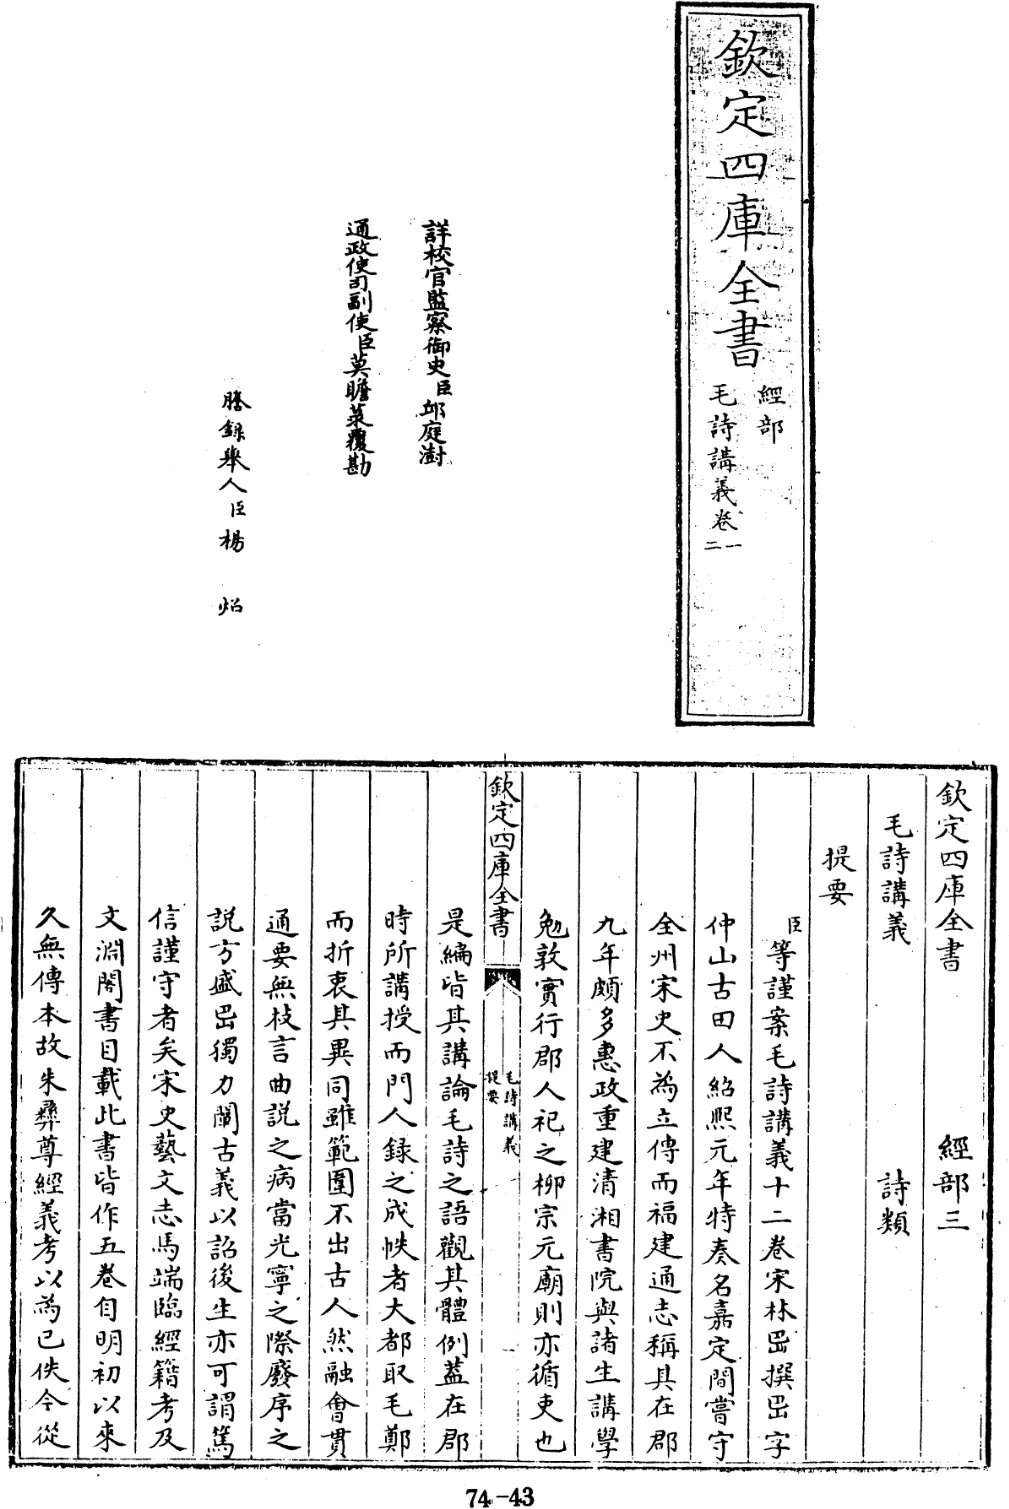 欽定四庫全書
經部
毛詩講義卷一二
詳校官監察御史臣邱庭澍
通政使司副使臣莫瞻菉覆勘
謄錄舉人臣楊炤
欽定四庫全書 經部三
毛詩講義 詩類
提要
臣等謹案毛詩講義十二卷宋林岊撰岊字
仲山古田人紹熙元年特奏名嘉定間嘗守
全州宋史不為立傳而福建通志稱其在郡
九年頗多惠政重建清湘書院與諸生講學
勉敦實行郡人祀之柳宗元廟則亦循吏也
欽定四庫全書
毛詩講義
提要
是編皆其講論毛詩之語觀其體例葢在郡
時所講授而門人録之成帙者大都取毛鄭
而折衷其異同雖範圍不出古人然融會貫
通要無枝言曲說之病當光寧之際廢序之
説方盛岊獨力闡古義以詔後生亦可謂篤
信謹守者矣宋史藝文志馬端臨經籍考及
文淵閣書目載此書皆作五卷自明初以來
久無傳本故朱彝尊經義考以為已佚今從
74-43